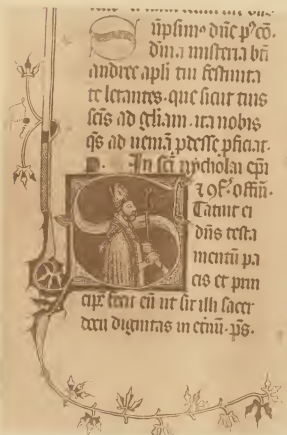 Sūpsim9 dn̄e p9 cō.
diuīa misteria btī
andree apli tui festiuita
te letantes. que sicut tuis
scīs ad gl̄iam. ita nobis
qs̄ ad ueniā pdesse pficiat.
In scī nycholai ep̄i
ꝛ 9f̄. offm̄.
Statuit ei
dn̄s testa
mentū pa
cis et prin
cipē fecit eū ut sit illi sacer
docii dignitas in et̄nū. ps̄.